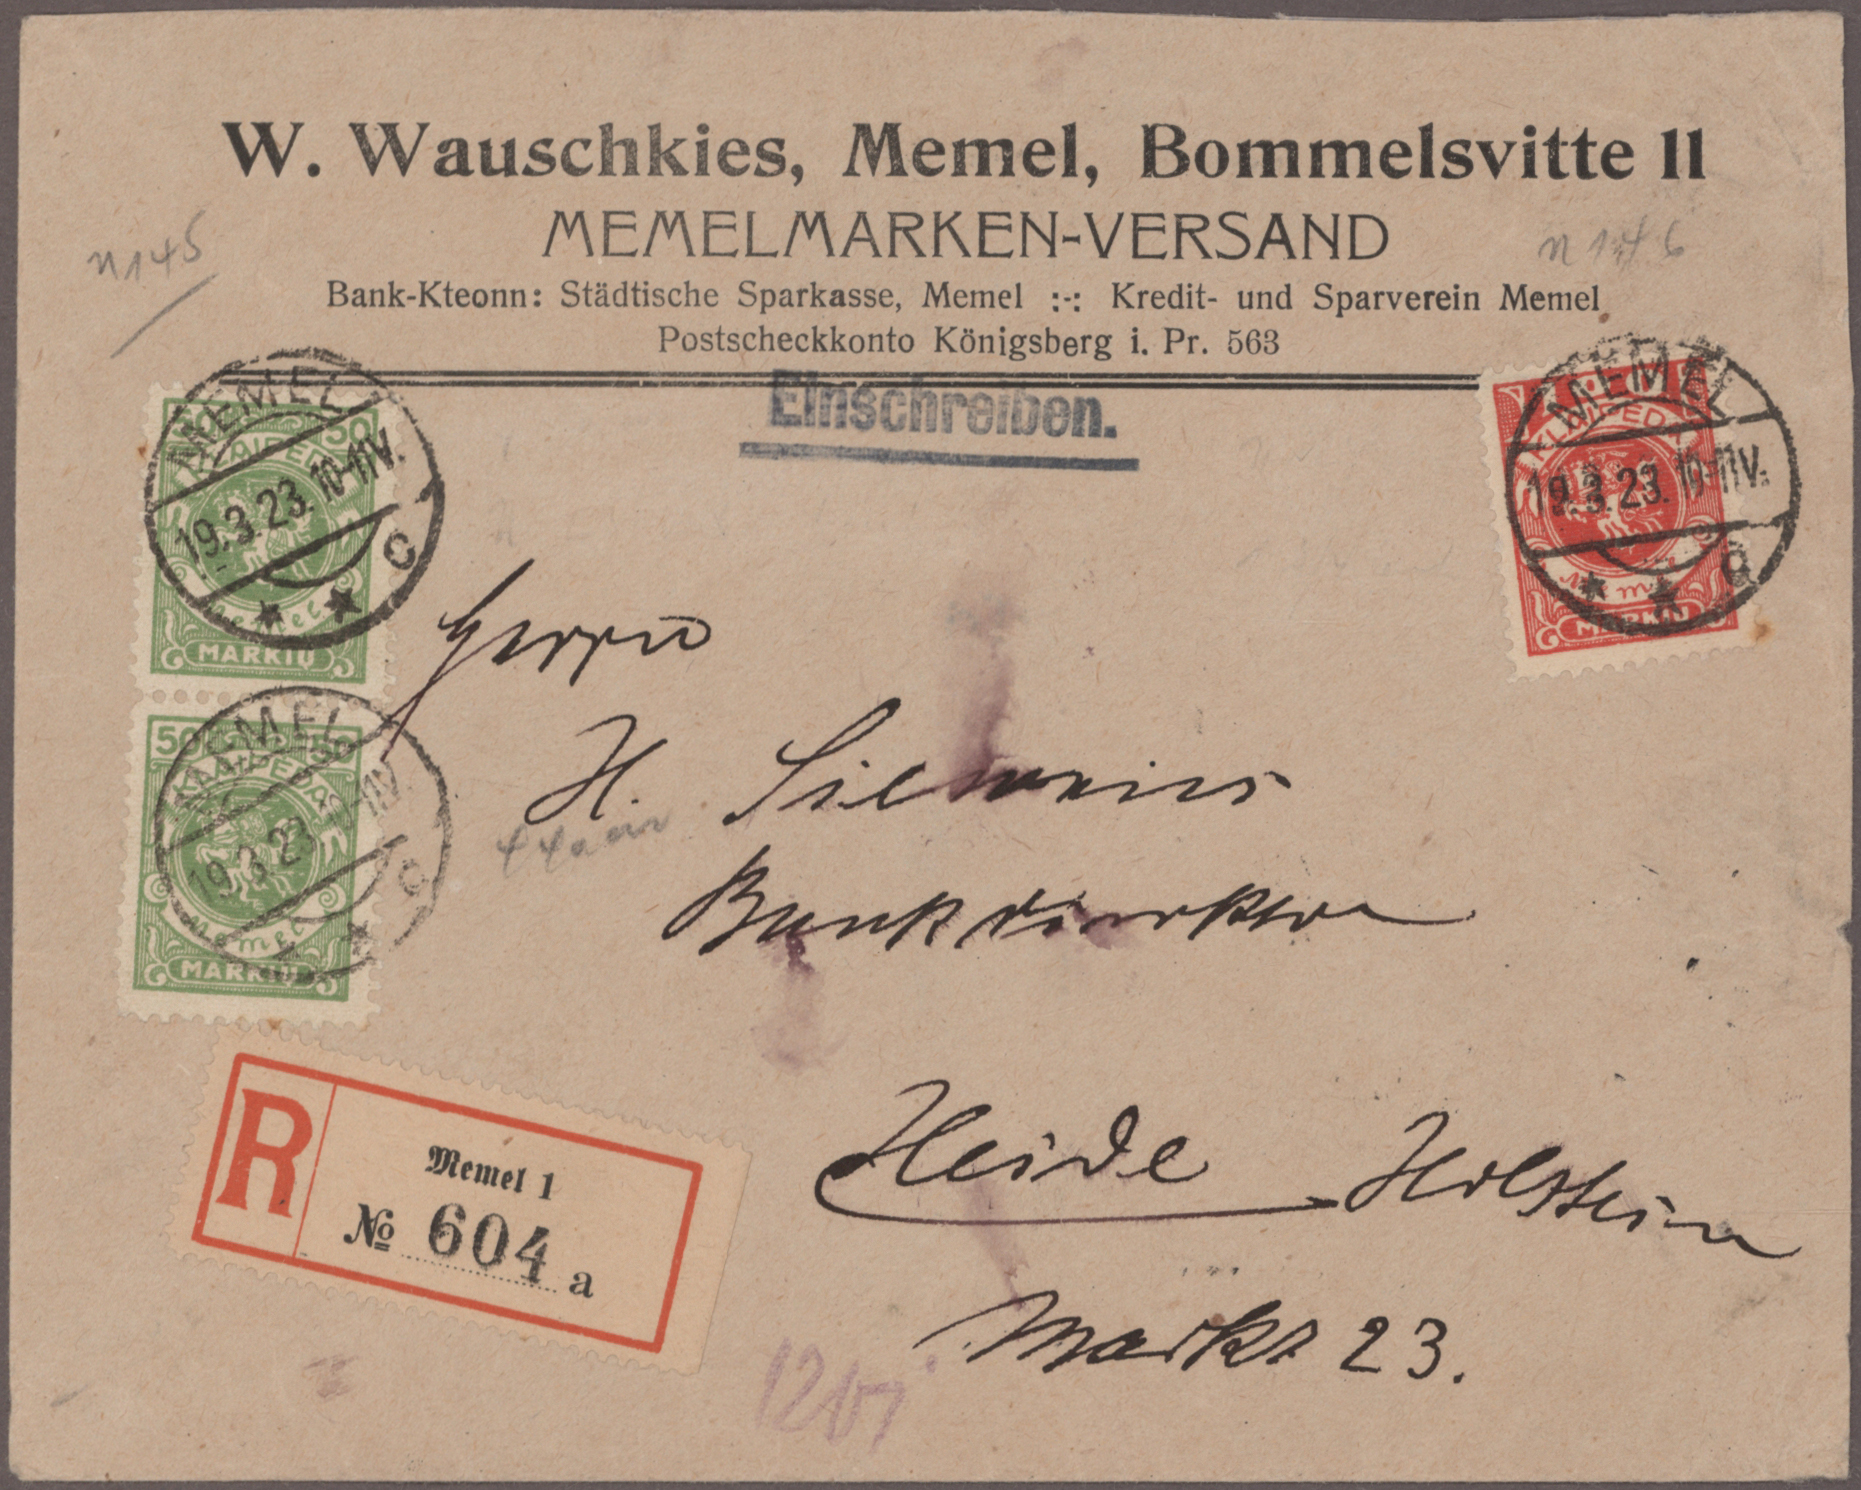 W. Wauschkies, Memel, Bommelsvitte 11
MEMELMARKEN-VERSAND
Bank-Kteonn: Städtische Sparkasse, Memel :-: Kredit- und Sparverein Memel
Postscheckkonto Königsberg i. Pr. 563
n145
n146
Einschreiben.
MEMEL
19.3.23. 10-11V.
c
50 50
KLAIPEDA
Memel
MARKIŲ
MEMEL
19.3.23. 10-11V.
c
50 50
KLAIPEDA
Memel
MARKIŲ
MEMEL
19.3.23. 10-11V.
KLAIPEDA
Memel
MARKIŲ
Herrn
H.
Bankdirektor
Heide Holstein
Markt 23.
R
Memel 1
№ 604 a